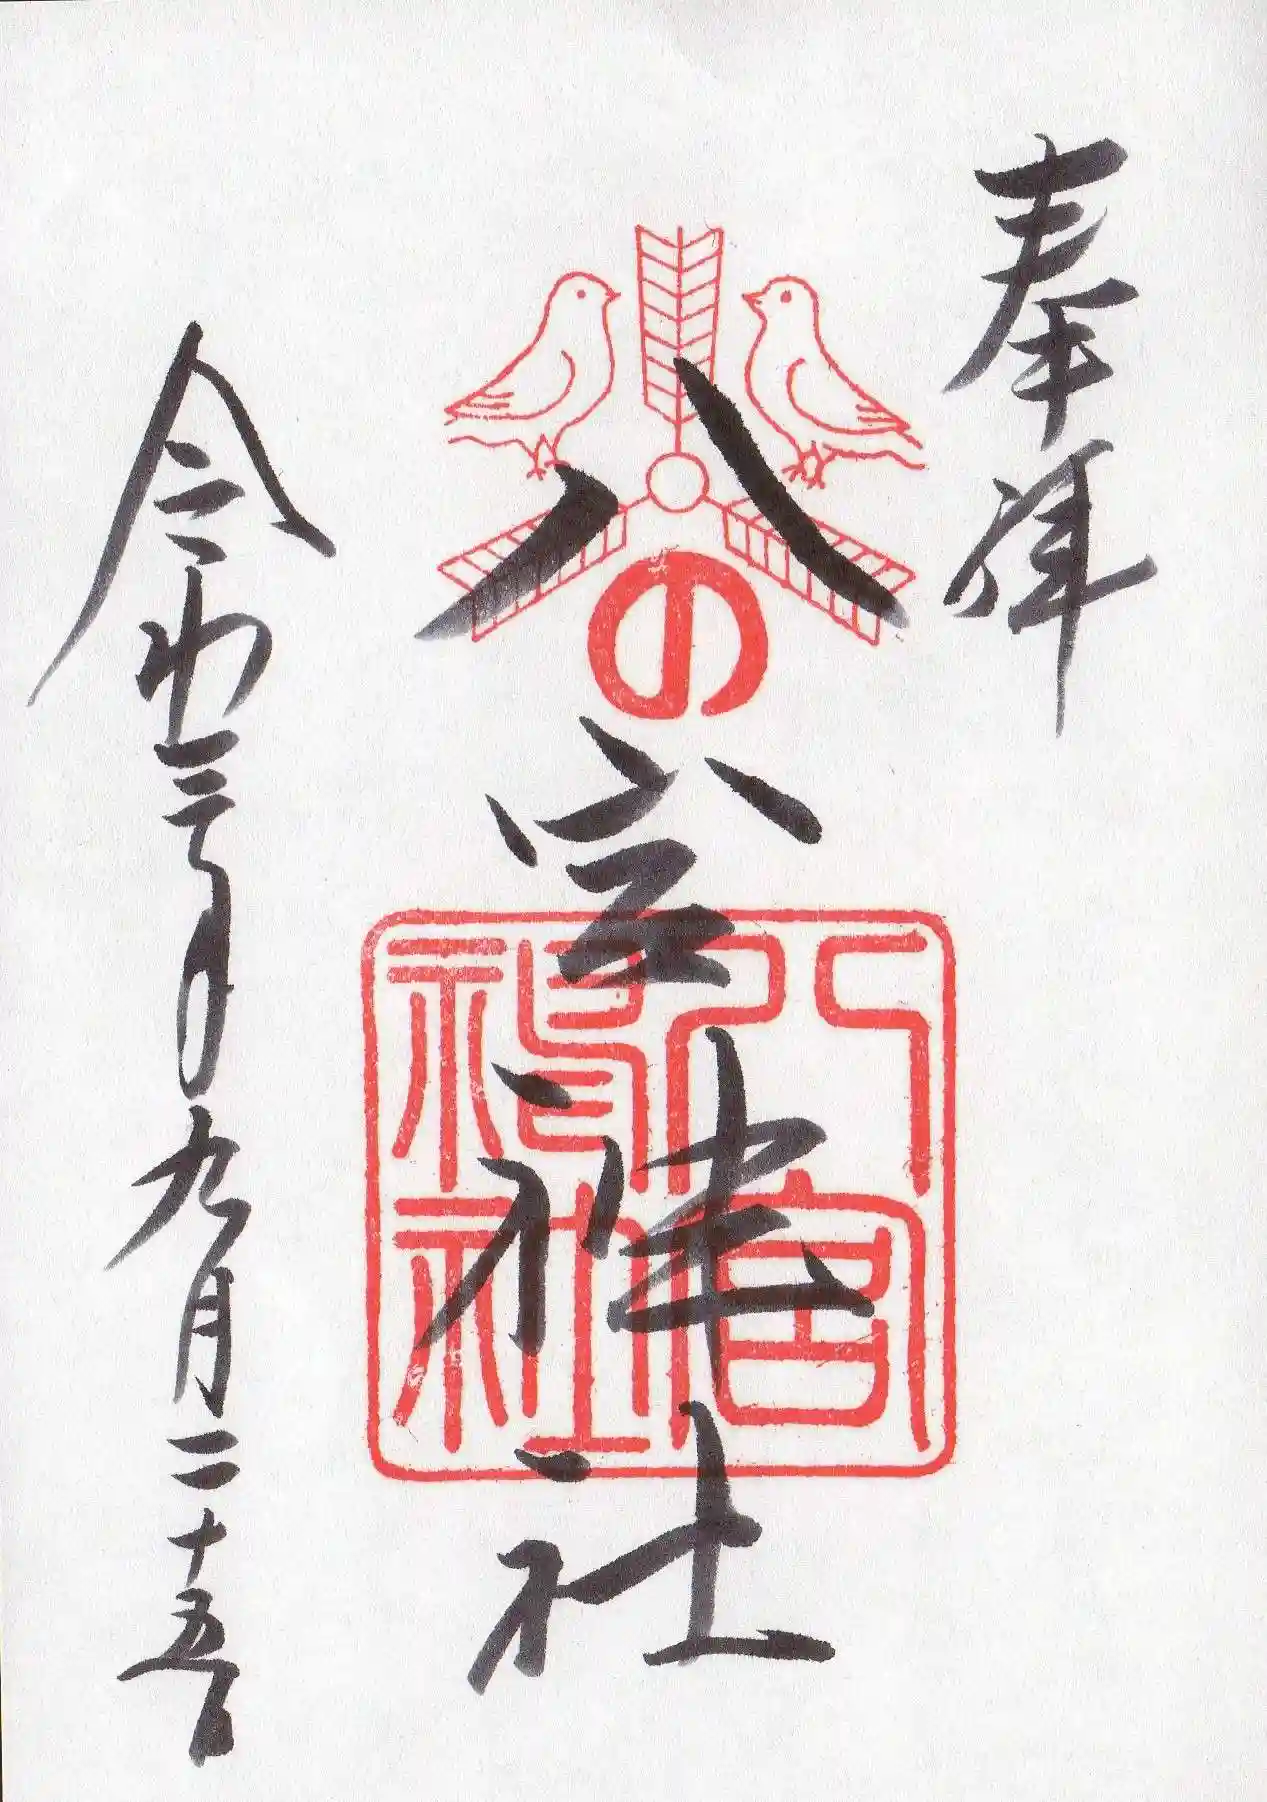 奉拝
八宮神社
の
八宮
神社
令和三年九月二十五日